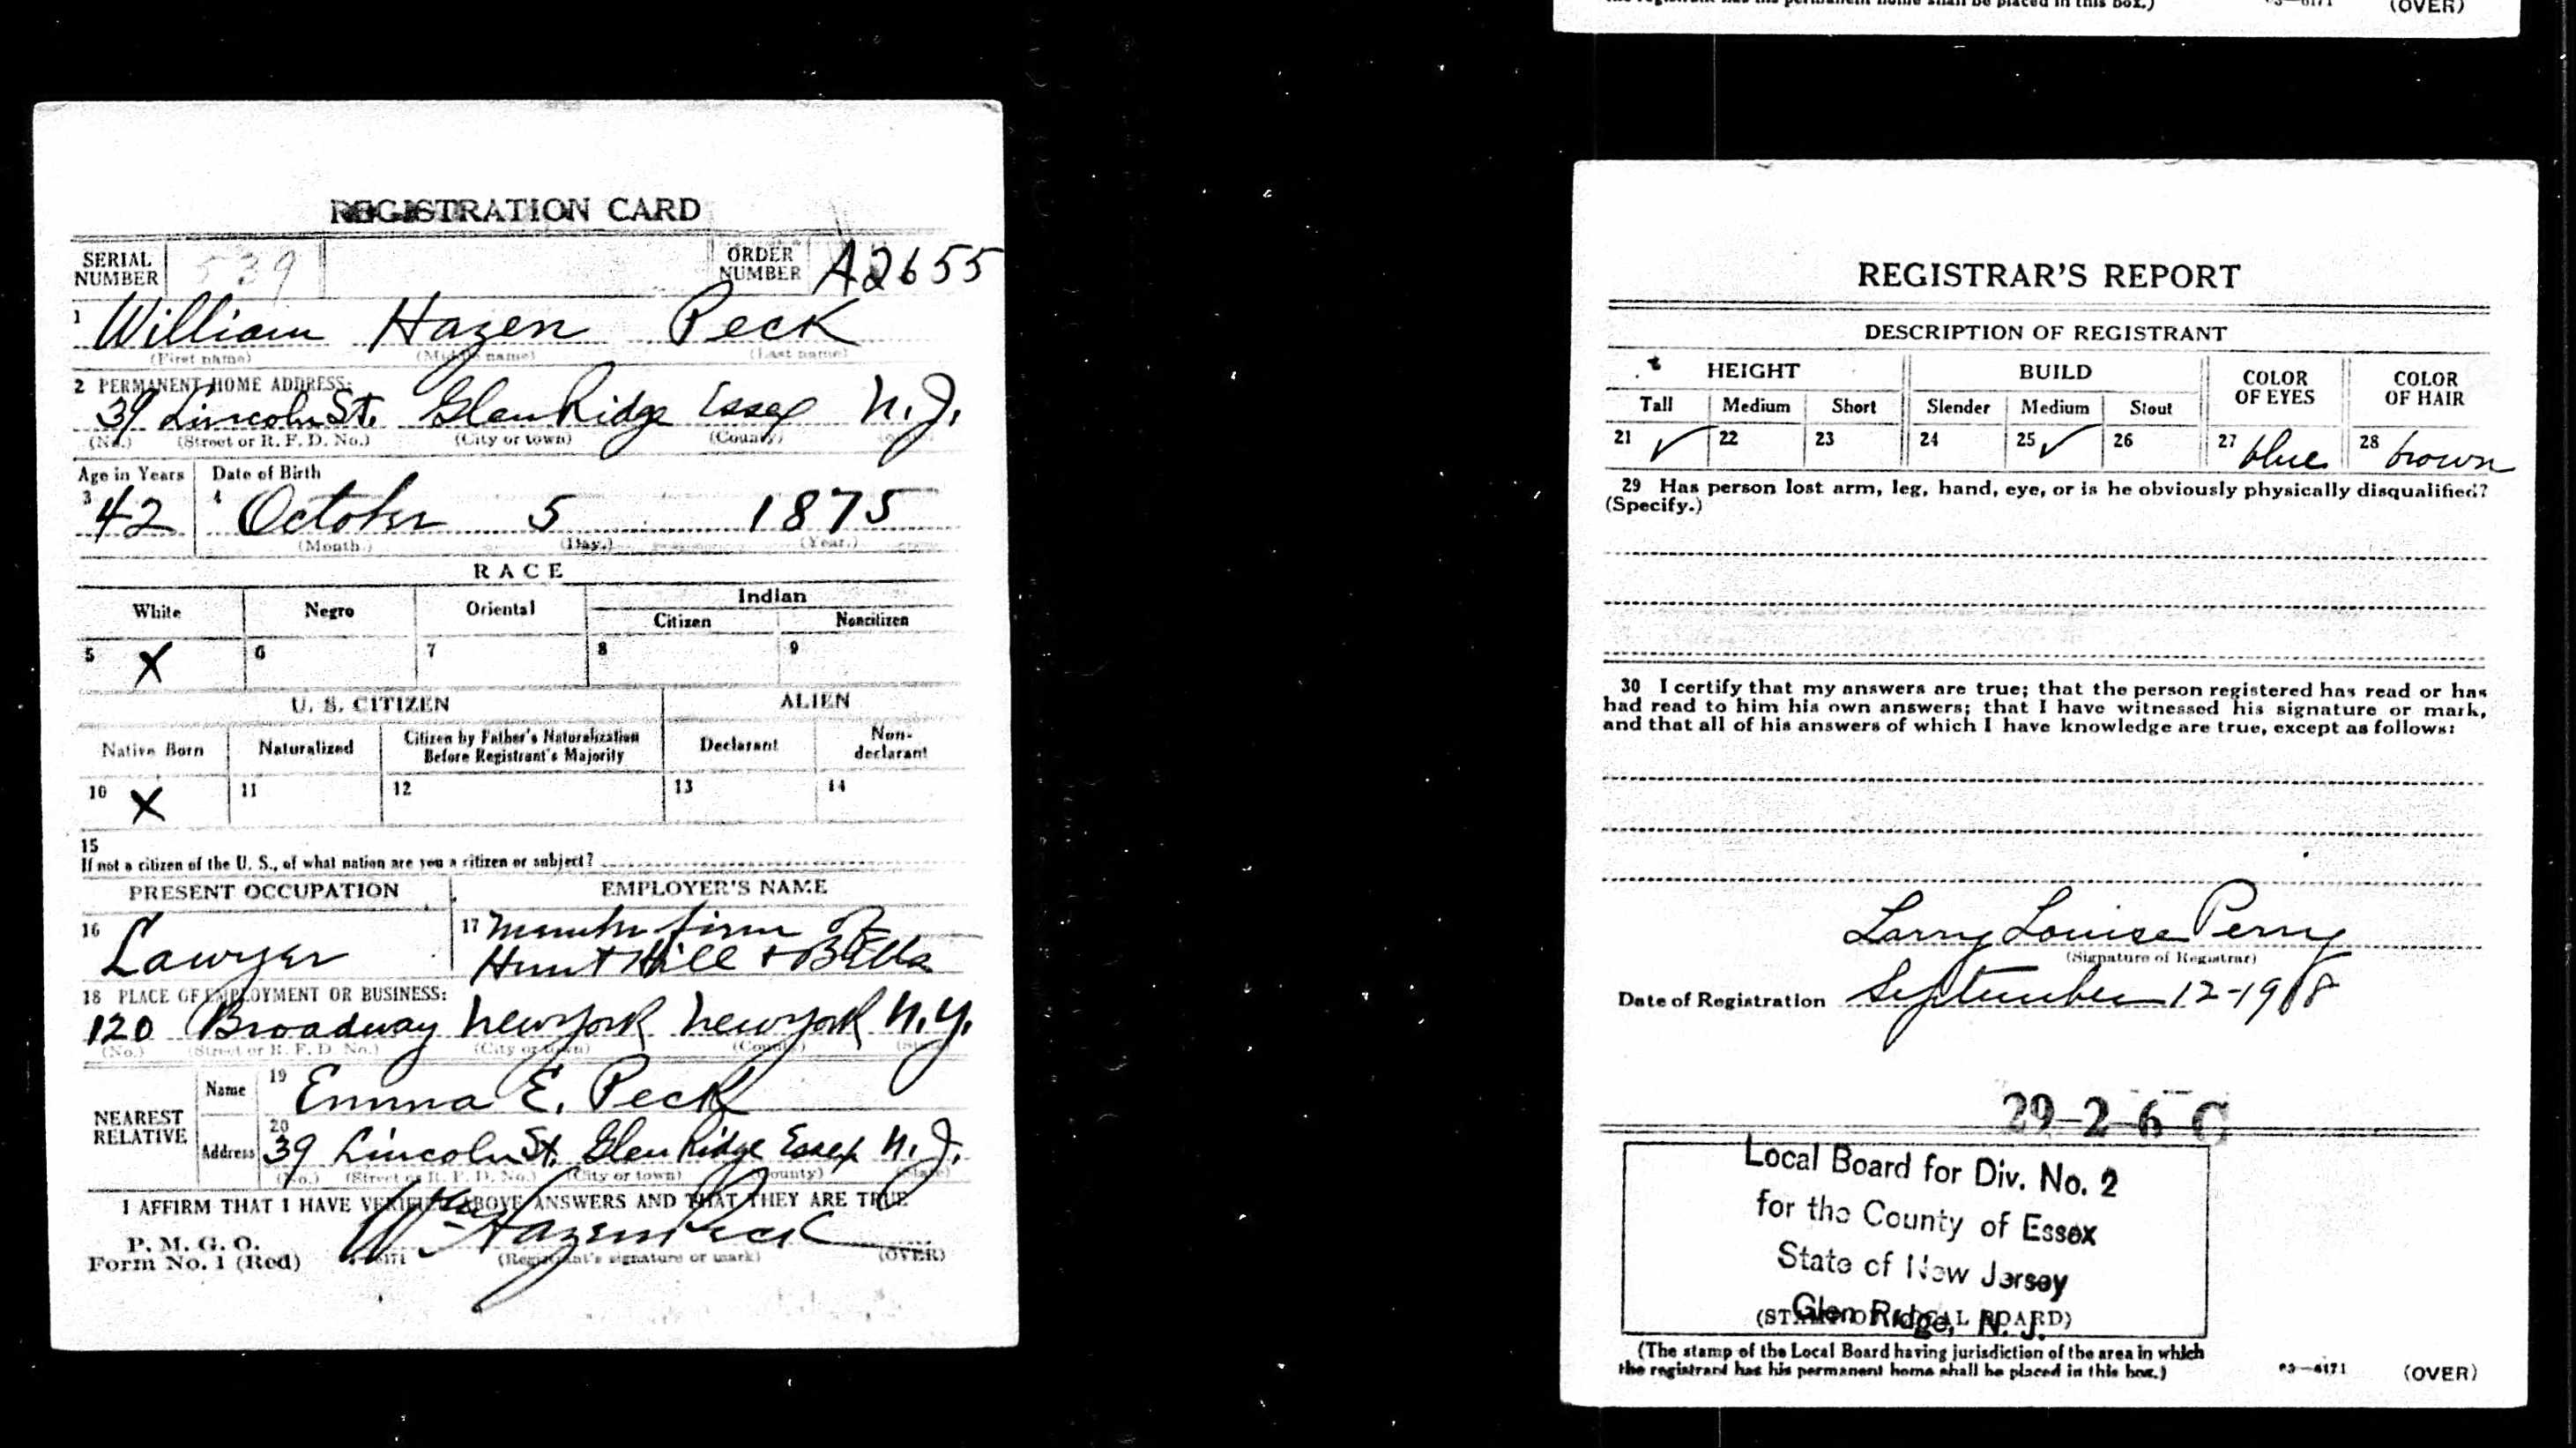 the registrant has his permanent home shall be placed in this box.) 63—6171 (OVER)
REGISTRATION CARD
SERIAL NUMBER 539 ORDER NUMBER A2655
1 William Hazen Peck
(First name) (Middle name) (Last name)
2 PERMANENT HOME ADDRESS:
39 Lincoln St. Glen Ridge Essex N.J.
(No.) (Street or R. F. D. No.) (City or town) (County)
Age in Years Date of Birth
3 42 4 October 5 1875
(Month.) (Day.) (Year.)
RACE
White Negro Oriental Indian
Citizen Noncitizen
5 X 6 7 8 9
U. S. CITIZEN ALIEN
Native Born Naturalized Citizen by Father's Naturalization Before Registrant's Majority Declarant Non-declarant
10 X 11 12 13 14
15
If not a citizen of the U. S., of what nation are you a citizen or subject?
PRESENT OCCUPATION EMPLOYER'S NAME
16 Lawyer 17 Member firm of
Hunt Hill & Betts
18 PLACE OF EMPLOYMENT OR BUSINESS:
120 Broadway New York New York N.Y.
(No.) (Street or R. F. D. No.) (City or town) (County) (State)
NEAREST RELATIVE Name 19 Emma E. Peck
Address 20 39 Lincoln St. Glen Ridge Essex N.J.
(No.) (Street or R. F. D. No.) (City or town) (County) (State)
I AFFIRM THAT I HAVE VERIFIED ABOVE ANSWERS AND THAT THEY ARE TRUE
P. M. G. O.
Form No. 1 (Red) Wm Hazen Peck
(Registrant's signature or mark) (OVER)
REGISTRAR'S REPORT
DESCRIPTION OF REGISTRANT
HEIGHT BUILD COLOR OF EYES COLOR OF HAIR
Tall Medium Short Slender Medium Stout
21 ✓ 22 23 24 25 ✓ 26 27 blue 28 brown
29 Has person lost arm, leg, hand, eye, or is he obviously physically disqualified?
(Specify.)
30 I certify that my answers are true; that the person registered has read or has
had read to him his own answers; that I have witnessed his signature or mark,
and that all of his answers of which I have knowledge are true, except as follows:
Louise Perry
(Signature of Registrar)
Date of Registration September 12-1918
29-2-6 C
Local Board for Div. No. 2
for the County of Essex
State of New Jersey
Glen Ridge, N. J.
(STAMP OF LOCAL BOARD)
(The stamp of the Local Board having jurisdiction of the area in which
the registrant has his permanent home shall be placed in this box.) 63—6171 (OVER)